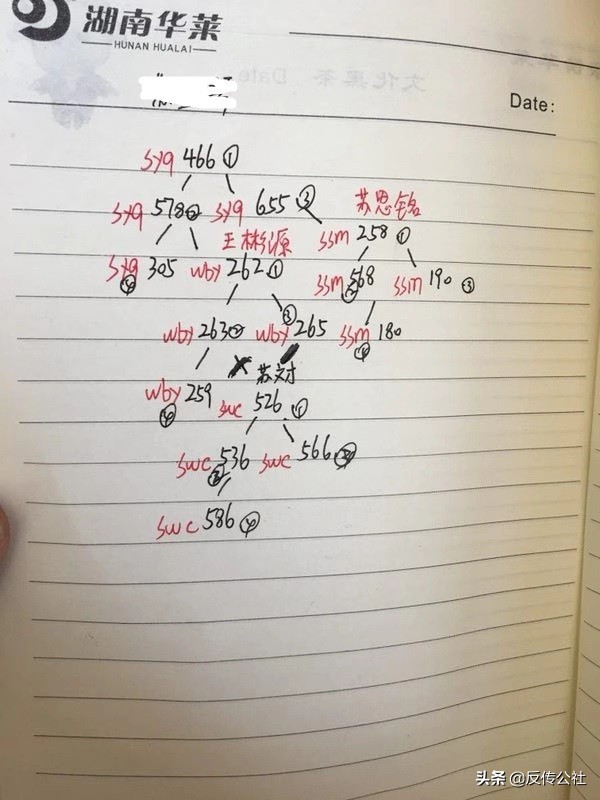 湖南华莱
HUNAN HUALAI
Date:
syq 466 ①
syq 578 ② syq 655 ③ 苏思铭
王彬源 ssm 258 ①
syq 305 ④ wby 262 ① ssm 568 ssm 190 ③
wby 263 ② wby 265 ③ ssm 180 ④
苏文才
wby 259 ④ swc 526 ①
swc 536 ② swc 566
swc 586 ④
头条 @反传公社